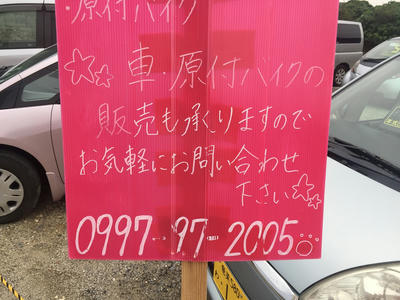 ・原付バイク
☆☆車・原付バイクの
販売も承りますので
お気軽にお問い合わせ
下さい☆☆
0997-97-2005